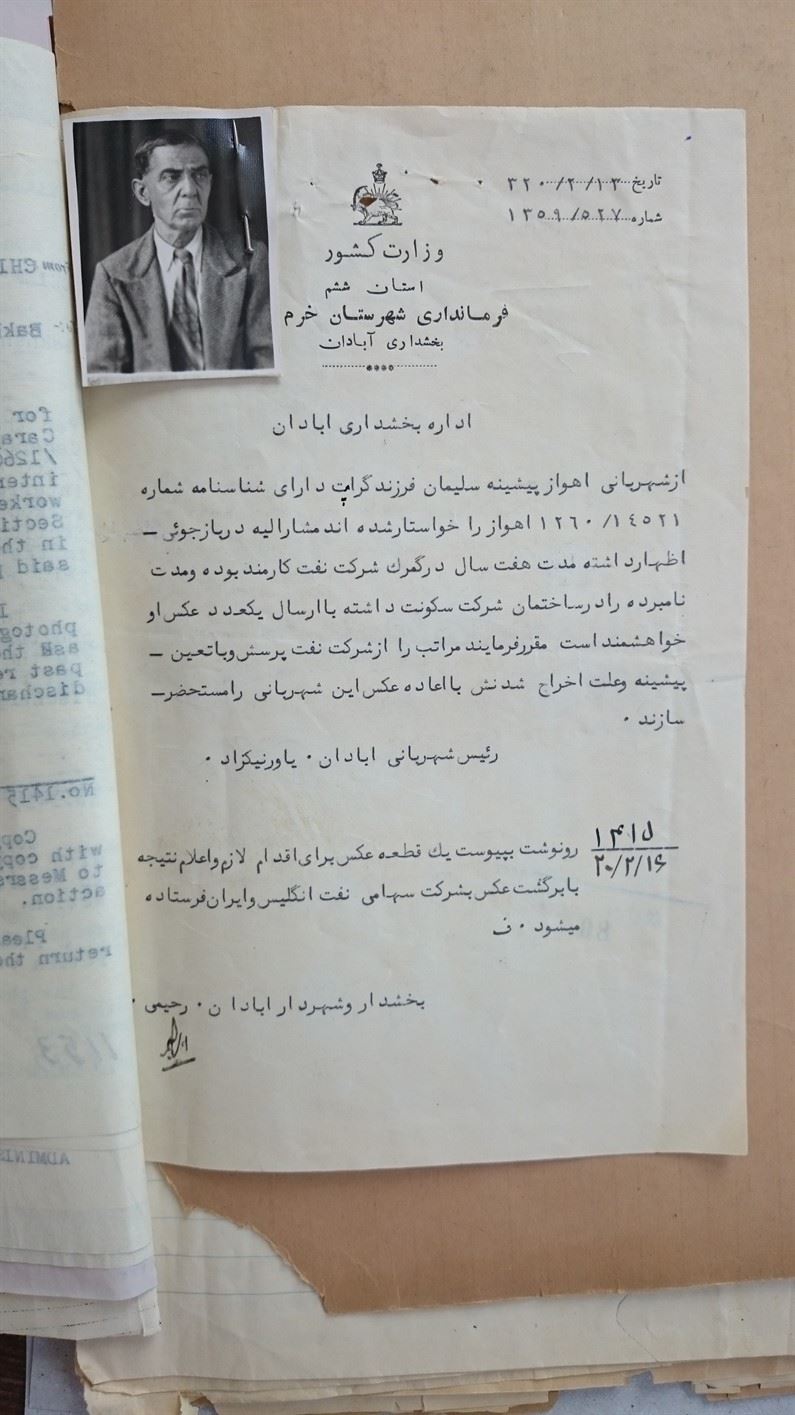 تاریخ ۳۲۰/۲/۱۳
شماره ۱۳۵۹/۵۲۷
وزارت کشور
استان ششم
فرمانداری شهرستان خرم
بخشداری آبادان
اداره بخشداری ابادان
ازشهربانی اهواز پیشینه سلیمان فرزند گرات دارای شناسنامه شماره
۱۲۶۰/۱٤۵۲۱ اهواز را خواستارشده اند مشارالیه دربازجوئی –
اظهارداشته مدت هفت سال درگمرك شرکت نفت کارمند بوده ومدت
نامبرده رادرساختمان شرکت سکونت داشته باارسال یکعدد عکس او
خواهشمند است مقررفرمایند مراتب را ازشرکت نفت پرسش وباتعین –
پیشینه وعلت اخراج شدنش بااعاده عکس این شهربانی رامستحضر–
سازند ۰
رئیس شهربانی ابادان ۰ یاورنیکزاد ۰
۱۴۱۵
۲۰/۲/۱۶
رونوشت بپیوست یك قطعه عکس برای اقدام لازم واعلام نتیجه
بابرگشت عکس بشرکت سهامی نفت انگلیس وایران فرستاده
میشود ۰ ف
بخشدار وشهردار ابادان ۰ رحیمی ۰
from CHI
Bak
for
Cara
/1260
inter
worke
Secti
in th
said
photog
ask the
past re
dischar
No.1415
Cop
with copy
to Messrs
action.
Pleas
return the
1153
ADMINIS